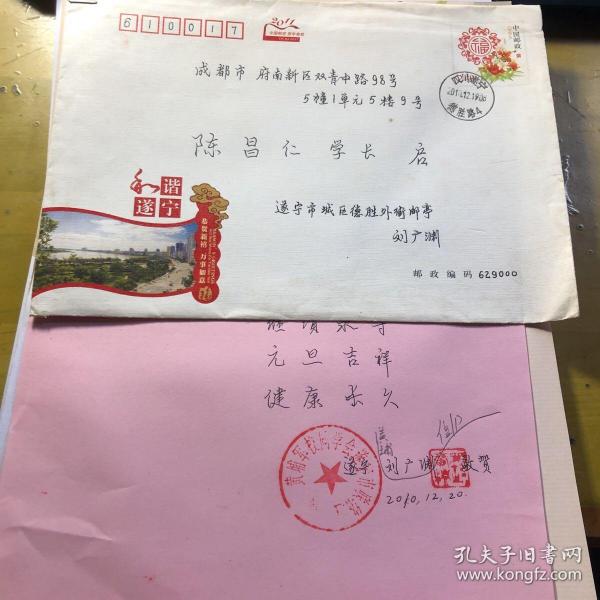 610017
2011
中国邮政
成都市 府南新区双青中路98号
5幢1单元5楼9号
四川遂宁
德胜路4
陈昌仁 学长 启
和谐
遂宁
恭贺新禧 万事如意
遂宁市城区德胜外街邮亭
刘广渊
邮政编码 629000
元旦吉祥
健康长久
遂宁 刘广渊 敬贺
2010.12.20.
黄埔军校同学会
孔夫子旧书网
www.kongfz.com